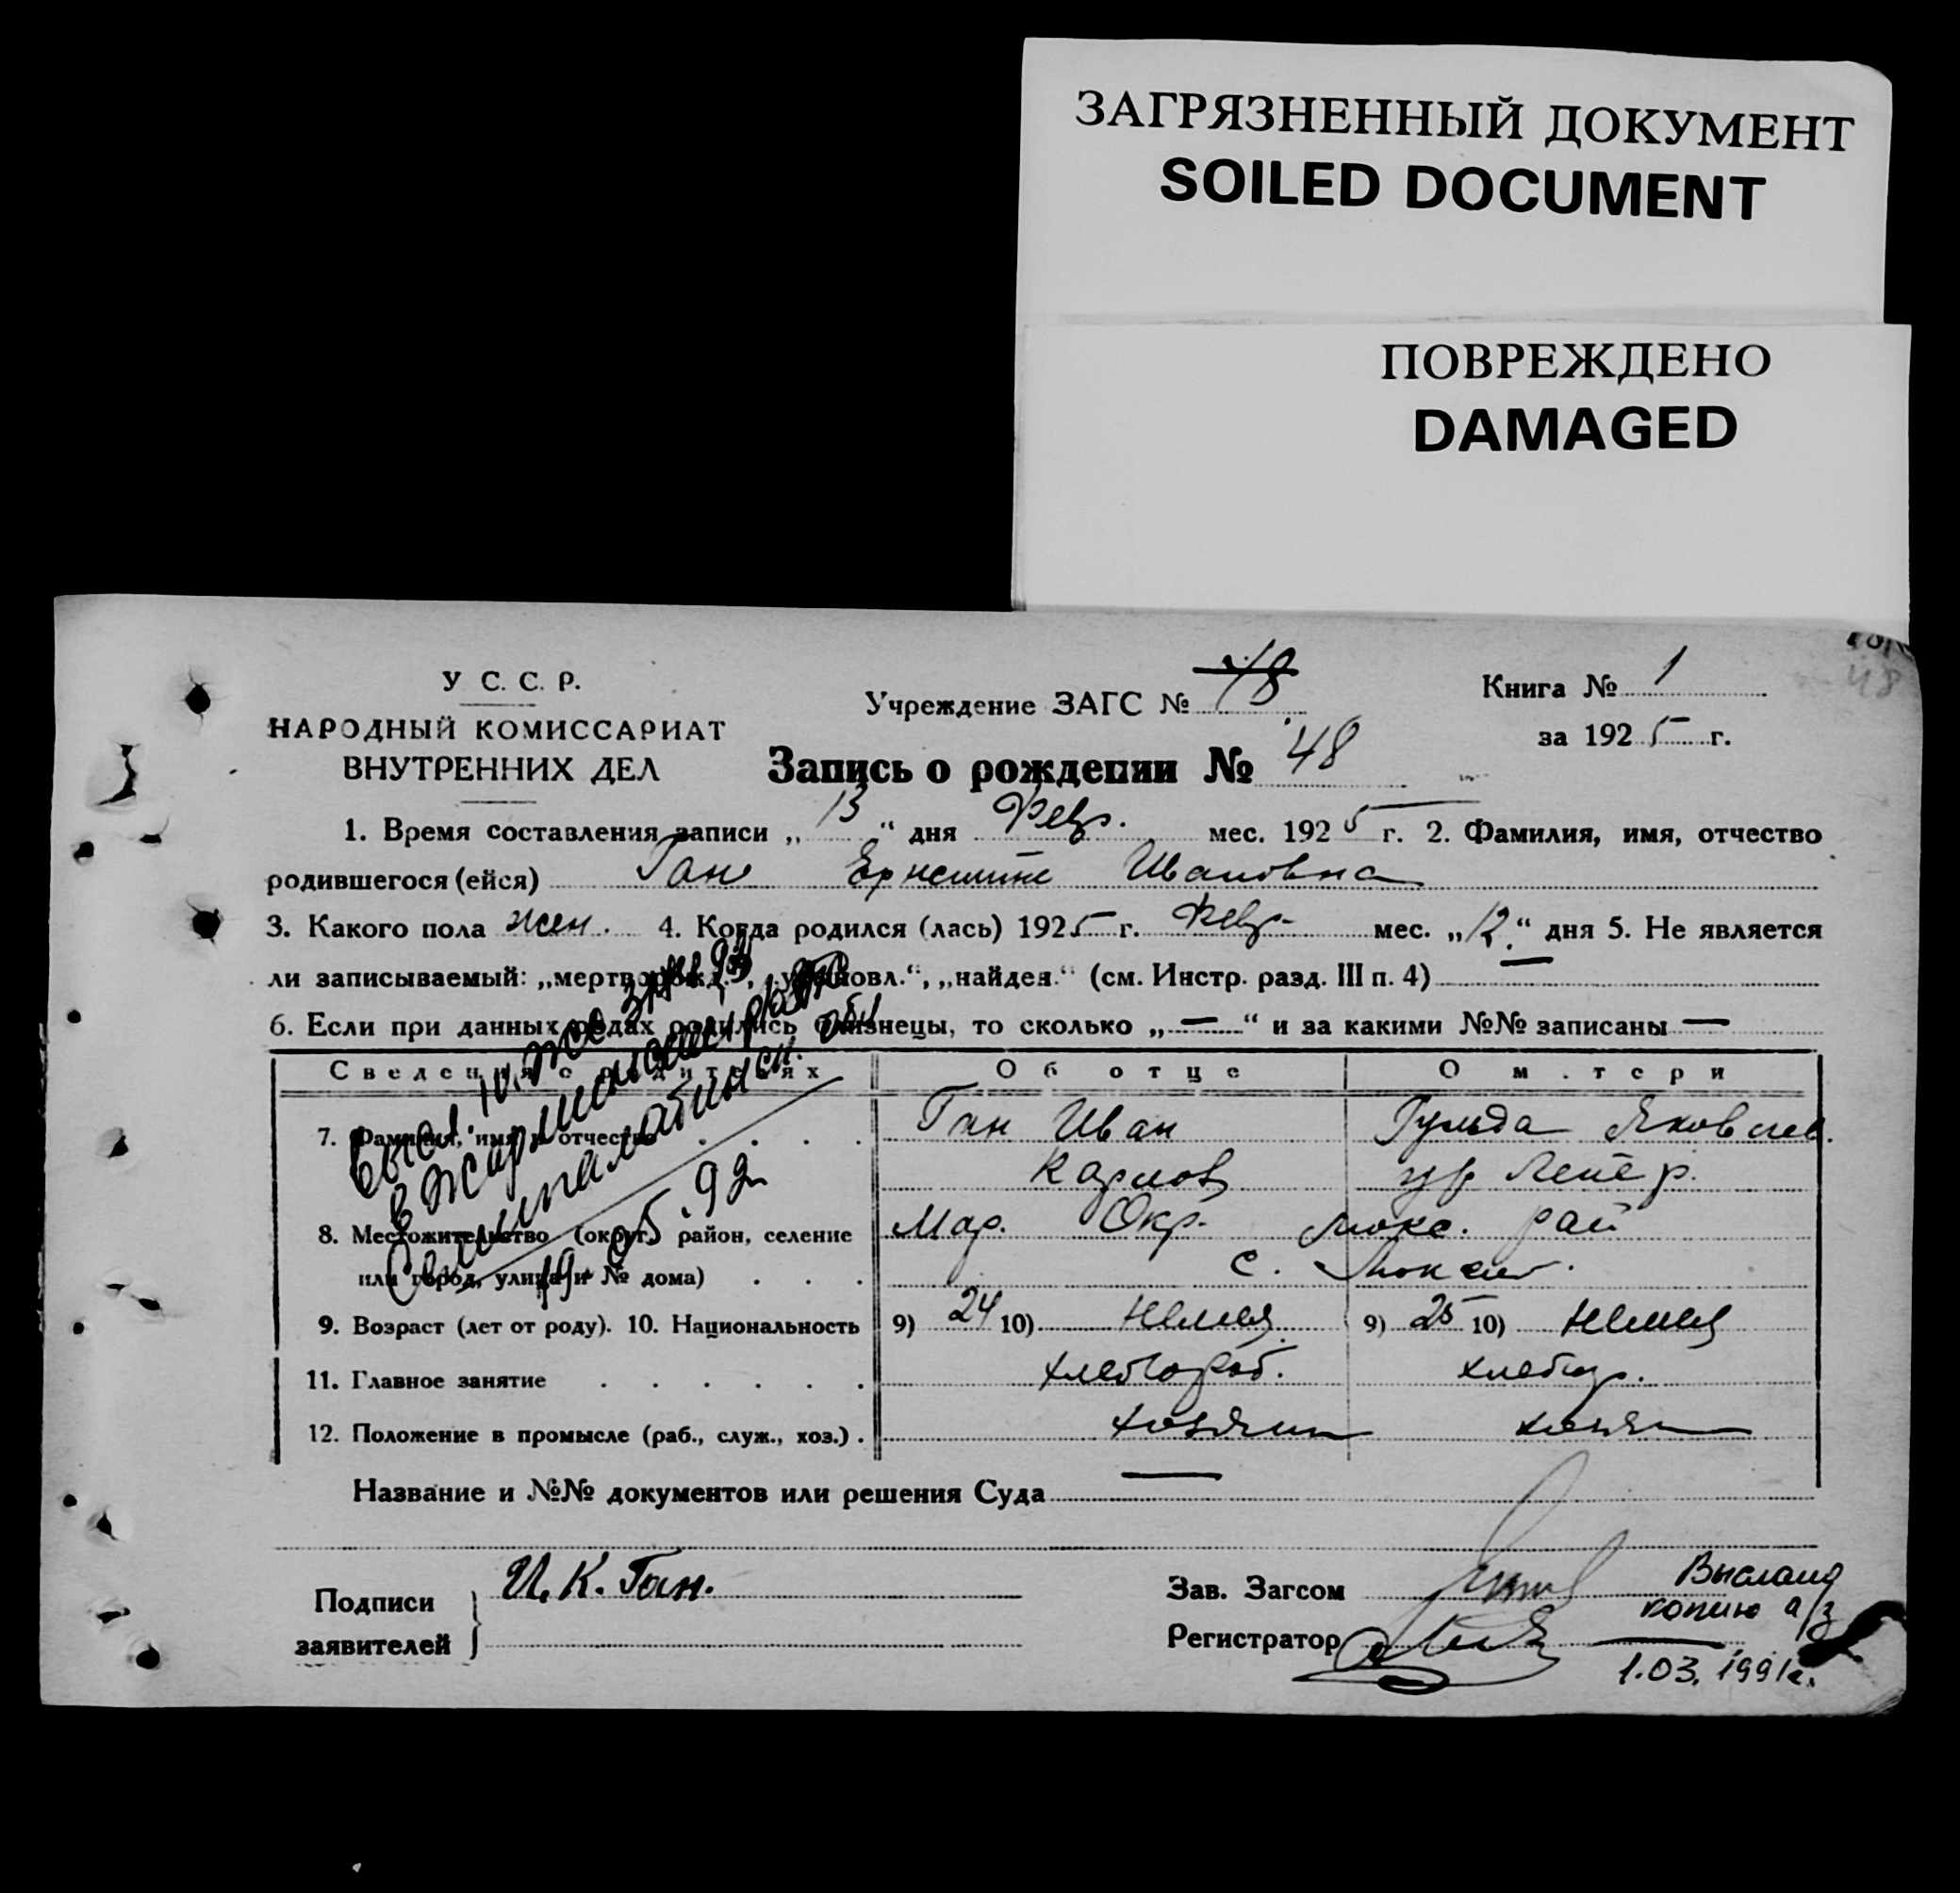 ЗАГРЯЗНЕННЫЙ ДОКУМЕНТ
SOILED DOCUMENT
ПОВРЕЖДЕНО
DAMAGED
48
У С. С. Р.
НАРОДНЫЙ КОМИССАРИАТ
ВНУТРЕННИХ ДЕЛ
Учреждение ЗАГС № 48
Книга № 1
за 1925 г.
Запись о рождении № 48
1. Время составления записи „13“ дня Февр. мес. 1925 г. 2. Фамилия, имя, отчество
родившегося (ейся) Ган Ернестине Ивановна
3. Какого пола жен. 4. Когда родился (лась) 1925 г. Февр. мес. „12.“ дня 5. Не является
ли записываемый: „мертворожд.“, „усыновл.“, „найден.“ (см. Инстр. разд. III п. 4) —
6. Если при данных родах родились близнецы, то сколько „—“ и за какими №№ записаны —
Сведения о родителях Об отце О матери
7. Фамилия, имя и отчество Ган Иван Гульда Яковлев.
Карлов
8. Местожительство (округ, район, селение Мар. Окр. Люкс. рай
или город, улица и № дома) с.
9. Возраст (лет от роду). 10. Национальность 9) 24 10) немец 9) 25 10) немец
11. Главное занятие хлебороб. хлебор.
12. Положение в промысле (раб., служ., хоз.) хозяин
Название и №№ документов или решения Суда —
Подписи
заявителей
И. К. Ган.
Зав. Загсом
Регистратор
Выслана
копию а/з
1.03.1991г.
в Жарминский
Семипалатинск. обл